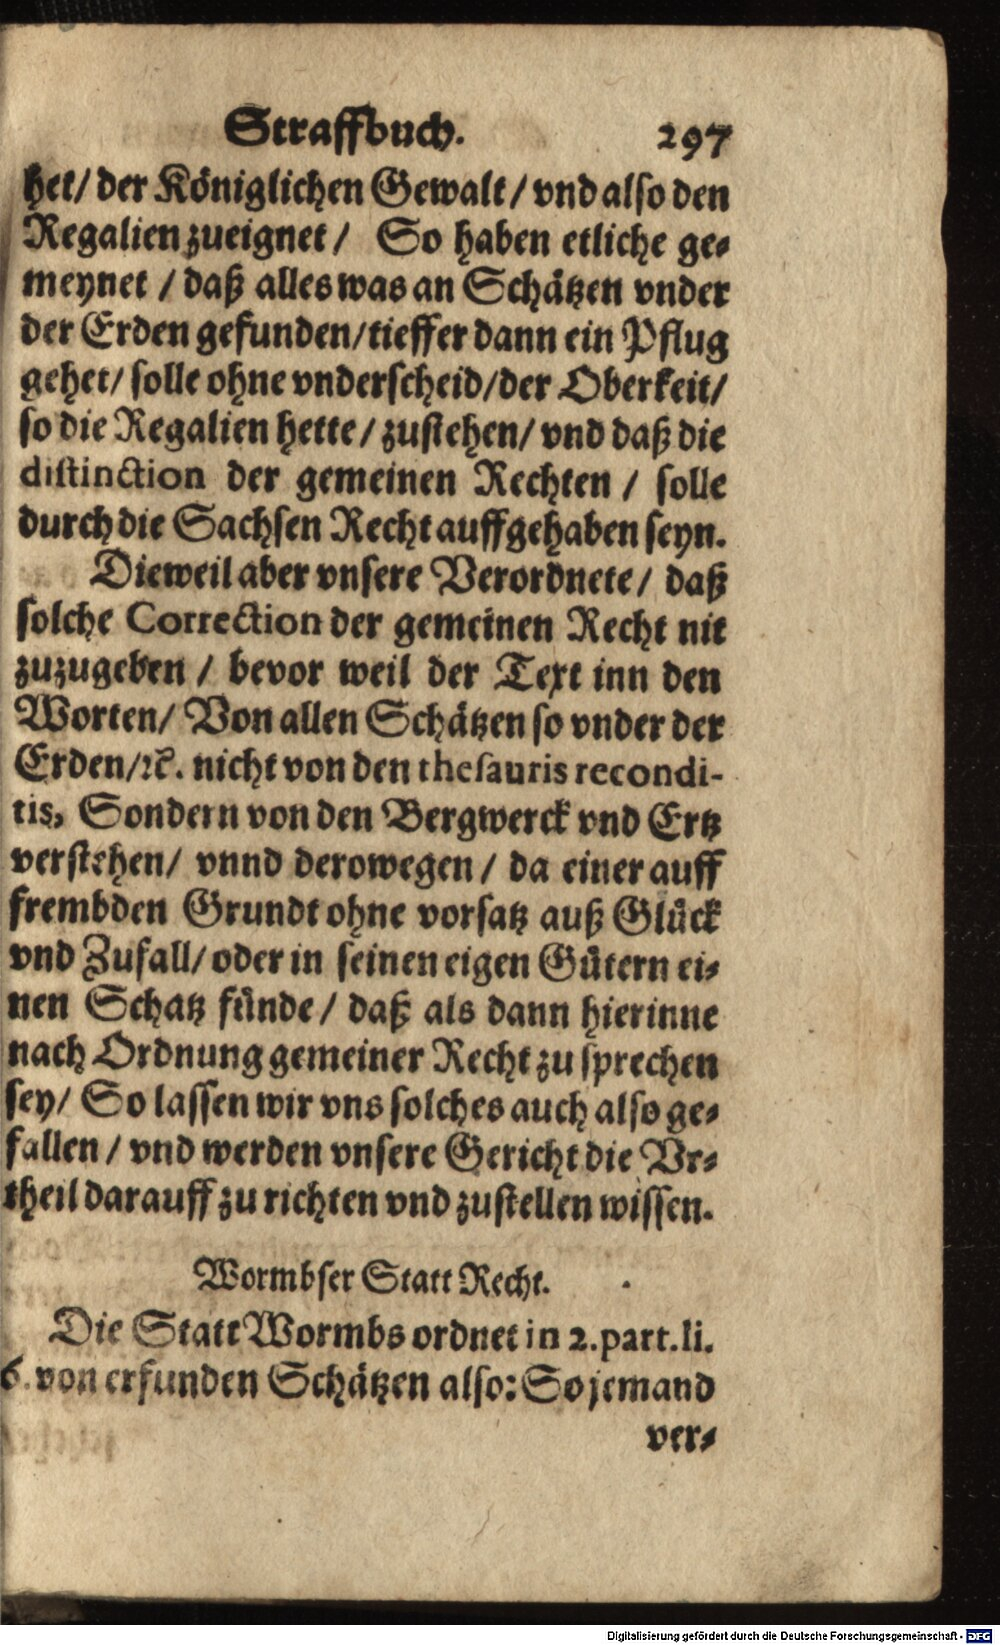 Straffbuch. 297
het/ der Königlichen Gewalt/ vnd also den
Regalien zueignet/ So haben etliche ge-
meynet / daß alles was an Schätzen vnder
der Erden gefunden/ tieffer dann ein Pflug
gehet/ solle ohne vnderscheid/ der Oberkeit/
so die Regalien hette/ zustehen/ vnd daß die
distinction der gemeinen Rechten / solle
durch die Sachsen Recht auffgehaben seyn.
Dieweil aber vnsere Verordnete/ daß
solche Correction der gemeinen Recht nit
zuzugeben / bevor weil der Text inn den
Worten/ Von allen Schätzen so vnder der
Erden/ ꝛc. nicht von den thesauris recondi-
tis, Sondern von den Bergwerck vnd Ertz
verstehen/ vnnd derowegen / da einer auff
frembden Grundt ohne vorsatz auß Glück
vnd Zufall/ oder in seinen eigen Gütern ei-
nen Schatz fünde/ daß als dann hierinne
nach Ordnung gemeiner Recht zu sprechen
sey/ So lassen wir vns solches auch also ge-
fallen / vnd werden vnsere Gericht die Vr-
theil darauff zu richten vnd zustellen wissen.
Wormbser Statt Recht.
Die Statt Wormbs ordnet in 2. part. li.
6. von erfunden Schätzen also: So jemand
ver-
Digitalisierung gefördert durch die Deutsche Forschungsgemeinschaft - DFG